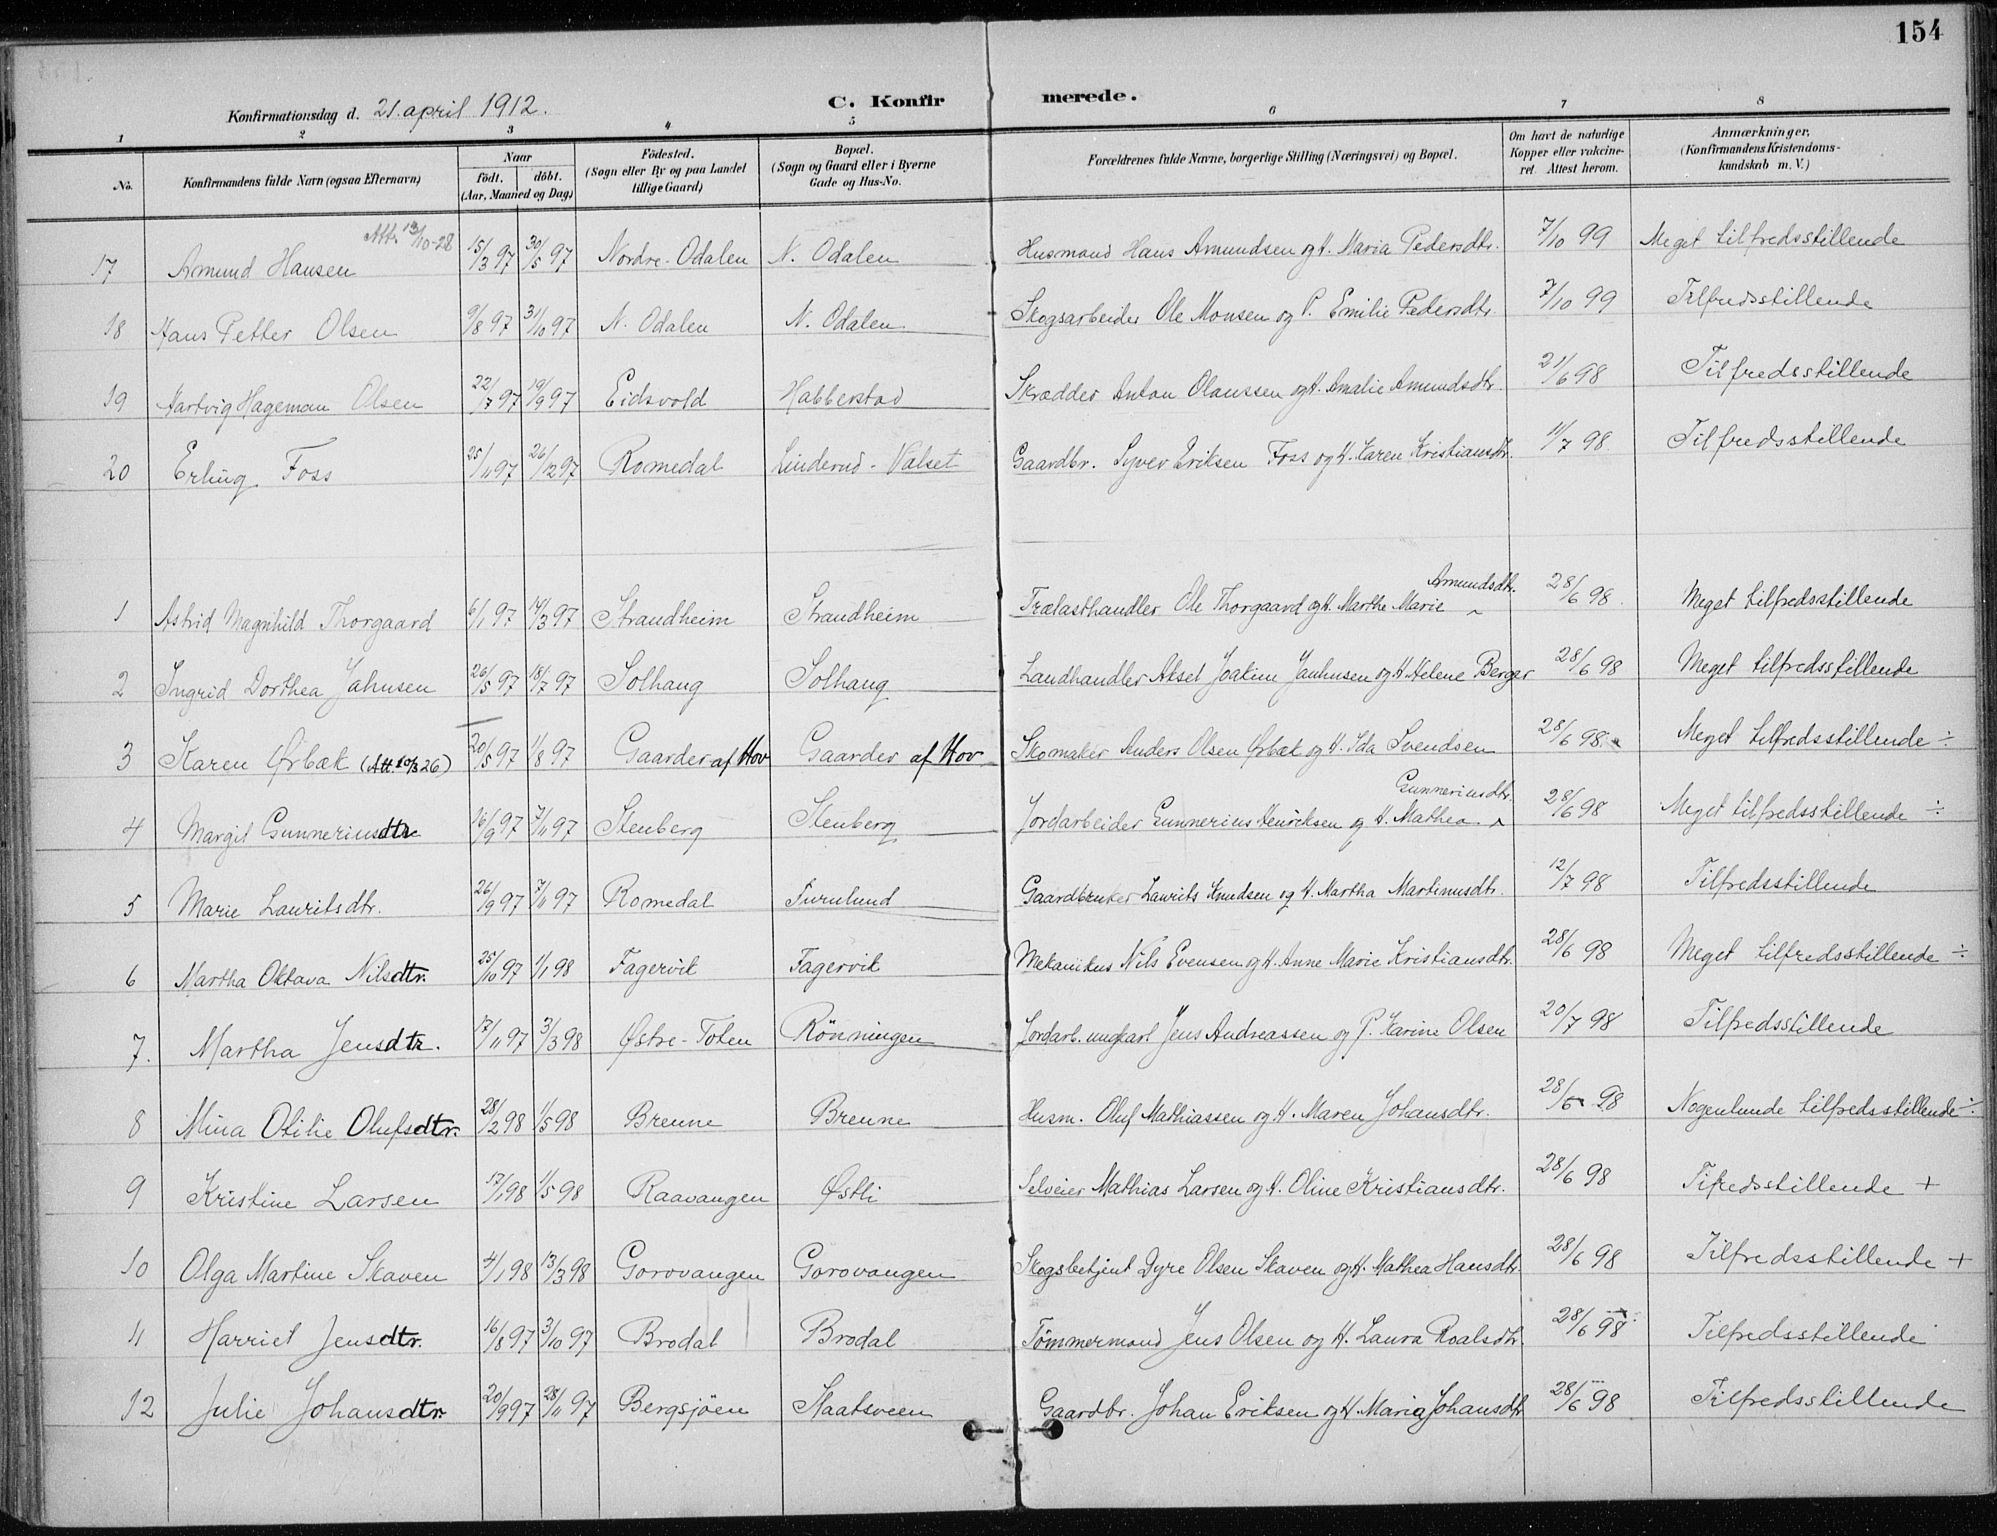 154
C. Konfirmerede.
Konfirmationsdag d. 21. april 1912.
1 2 3 4 5 6 7 8
No. Konfirmandens fulde Navn (ogsaa Efternavn) Naar født. døbt. (Aar, Maaned og Dag) Fødested. (Sogn eller By og paa Landet tillige Gaard) Bopæl. (Sogn og Gaard eller i Byerne Gade og Hus-No. Forældrenes fulde Navne, borgerlige Stilling (Næringsvei) og Bopæl. Om havt de naturlige Kopper eller vakcineret. Attest herom. Anmærkninger. (Konfirmandens Kristendomskundskab m. V.)
Att. 13/10-28
17 Amund Hansen 15/3 97 30/5 97 Nordre-Odalen N. Odalen Husmand Hans Amundsen og H. Maria Pedersdtr. 7/10 99 Meget tilfredsstillende
18 Hans Petter Olsen 9/8 97 31/10 97 N. Odalen N. Odalen Skogsarbeider Ole Monsen og P. Emilie Pedersdtr. 7/10 99 Tilfredsstillende
19 Hartvig Hageman Olsen 22/7 97 19/9 97 Eidsvold Habberstad Skrædder Anton Olaussen og H. Amalie Amundsdtr. 21/6 98 Tilfredsstillende
20 Erling Foss 25/11 97 26/12 97 Romedal Linderud-Valset Gaardbr. Syver Eriksen Foss og H. Karen Kristiansdtr. 11/7 98 Tilfredsstillende
1 Astrid Magnhild Thorgaard 6/1 97 14/3 97 Strandheim Strandheim Trælasthandler Ole Thorgaard og H. Marthe Marie Amundsdtr. 28/6 98. Meget tilfredsstillende
2 Ingrid Dorthea Jahnsen 26/5 97 18/7 97 Solhaug Solhaug Landhandler Aksel Joakim Janhnsen og H. Helene Berger 28/6 98 Meget tilfredsstillende
3 Karen Ørbæk (Att. 10/3 26) 20/5 97 1/8 97 Gaarder af Hov Gaarder af Hov Skomaker Anders Olsen Ørbæk og H. Ida Svendsen 28/6 98 Meget tilfredsstillende ÷
4 Margit Gunneriusdtr. 16/9 97 7/11 97 Stenberg Stenberg Jordarbeider Gunnerius Henriksen og H. Mathea Gunneriusdtr. 28/6 98 Meget tilfredsstillende ÷
5 Marie Lauritsdtr. 26/9 97 7/11 97 Romedal Furulund Gaardbruker Laurits Knudsen og H. Martha Martinusdtr. 12/7 98 Tilfredsstillende
6 Martha Oktava Nilsdtr. 25/10 97 1/1 98 Fagervik Fagervik Mekanikus Nils Evensen og H. Anne Marie Kristiansdtr. 28/6 98 Meget tilfredsstillende ÷
7. Martha Jensdtr. 17/11 97 3/3 98 Østre-Toten Rönningen Jordarb. ungkarl Jens Andreassen og P. Karine Olsen 20/7 98 Tilfredsstillende
8 Mina Otilie Olufsdtr. 28/2 98 1/5 98 Brenne Brenne Husm. Oluf Mathiassen og H. Maren Johansdtr. 28/6 98 Nogenlunde tilfredsstillende ÷
9 Kristine Larsen 17/1 98 1/5 98 Raavangen Østli Selveier Mathias Larsen og H. Oline Kristiansdtr. 28/6 98 Tifredsstillende +
10 Olga Martine Skaven 4/1 98 13/3 98 Gorovangen Gorovangen Skogsbetjent Dyre Olsen Skaven og H. Mathea Hansdtr. 28/6 98 Tilfredsstillende +
11 Harriet Jensdtr. 16/8 97 3/10 97 Brodal Brodal Tømmermand Jens Olsen og H. Laura Roalsdtr. 28/6 98 Tilfredsstillende
12 Julie Johansdtr. 20/9 97 28/11 97 Bergsjöen Skaatsveen Gaardbr. Johan Eriksen og H. Maria Johansdtr 28/6 98 Tilfredsstillende